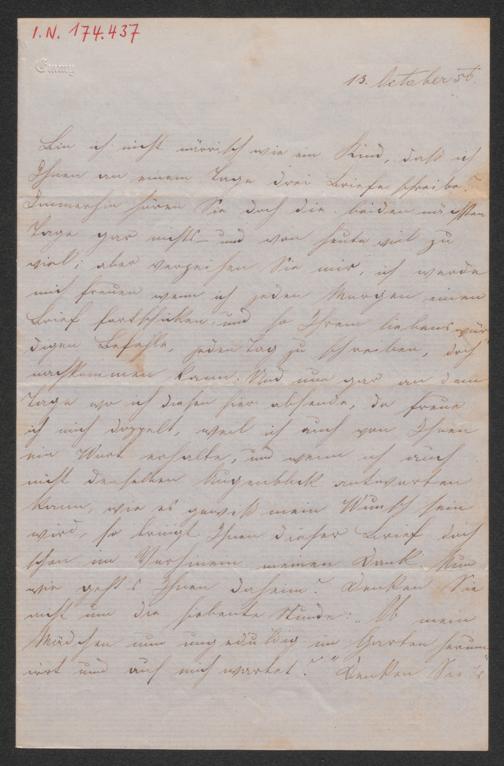 I.N. 174.437
Emmy
13. October 56.
Bin ich nicht närrisch wie ein Kind, daß ich
Ihnen an einem Tage drei Briefe schreibe?
Immerhin hören Sie doch die beiden nächsten
Tage gar nichts – und von heute viel zu
viel; aber verzeihen Sie mir, ich werde
mich freuen wenn ich jeden Morgen einen
Brief fortschicken, und so Ihrem liebenswür
digen Befehle, jeden Tag zu schreiben, doch
nachkommen kann. Und nun gar an dem
Tage wo ich diesen hier absende, da freue
ich mich doppelt, weil ich auch von Ihnen
ein Wort erhalte, und wenn ich auch
nicht denselben Augenblick antworten
kann, wie es gewiß mein Wunsch sein
wird, so bringt Ihnen dieser Brief doch
schon im Vorhinein meinen Dank. Nun
wie geht's Ihnen daheim? Denken Sie
nicht um die siebente Stunde: „Ob mein
Mädchen nun ungeduldig im Garten herum
irrt und auf mich wartet?" Denken Sie